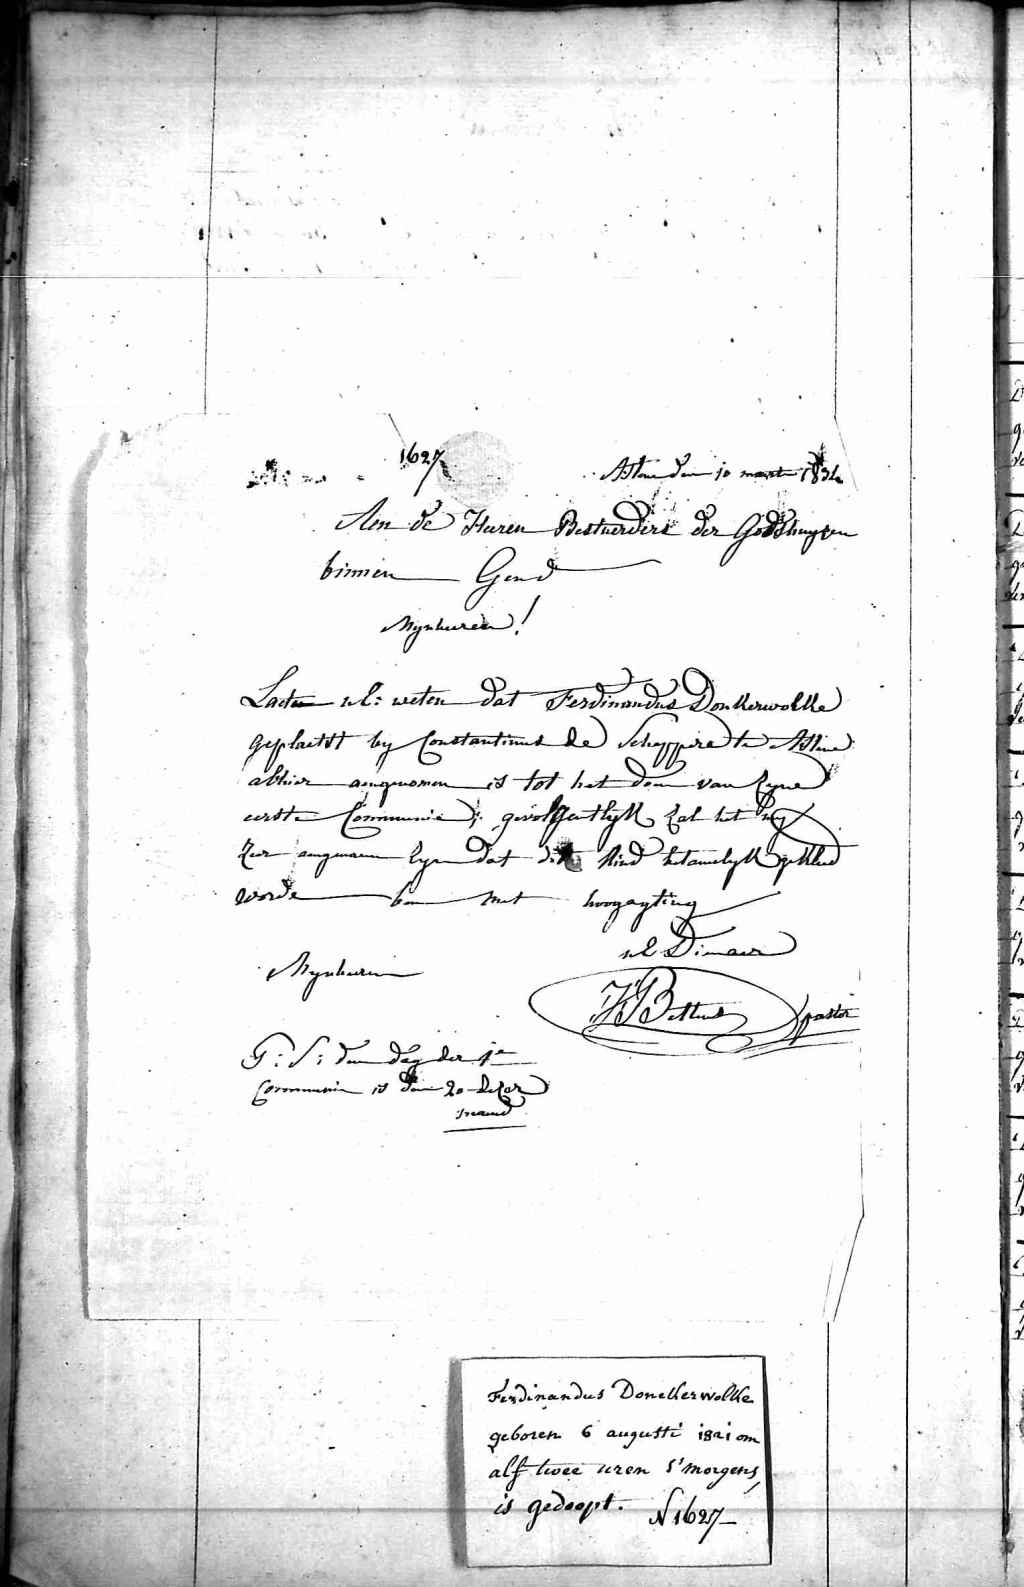 1627
den 10 1834
Aen de Heeren Bestuerders der Godshuysen
binnen Gend
Mynheeren!
Laete ul: weten dat Ferdinandus Donkerwolke
geplaetst by Constantinus de Scheppere te
alhier aengenomen is tot het doen van zyne
eerste Communie; gevolgentlyk zal het my
zeer aengenaem zyn dat dit kind betamelyk gekleed
worde ben met hoogagting
ul Dienaer
Mynheeren
pastor
P: S: den dag der 1e
Communie is den 20 dezer
maend
Ferdinandus Donckerwolke
geboren 6 augusti 1821 om
alf twee uren s'morgens,
is gedoopt. N 1627